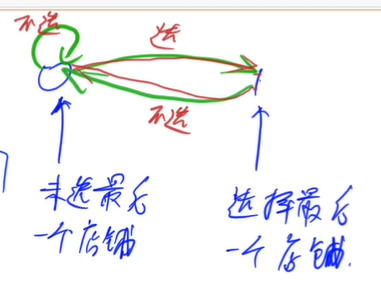 不选
选
不选
未选最后
一个店铺
选择最后
一个店铺.